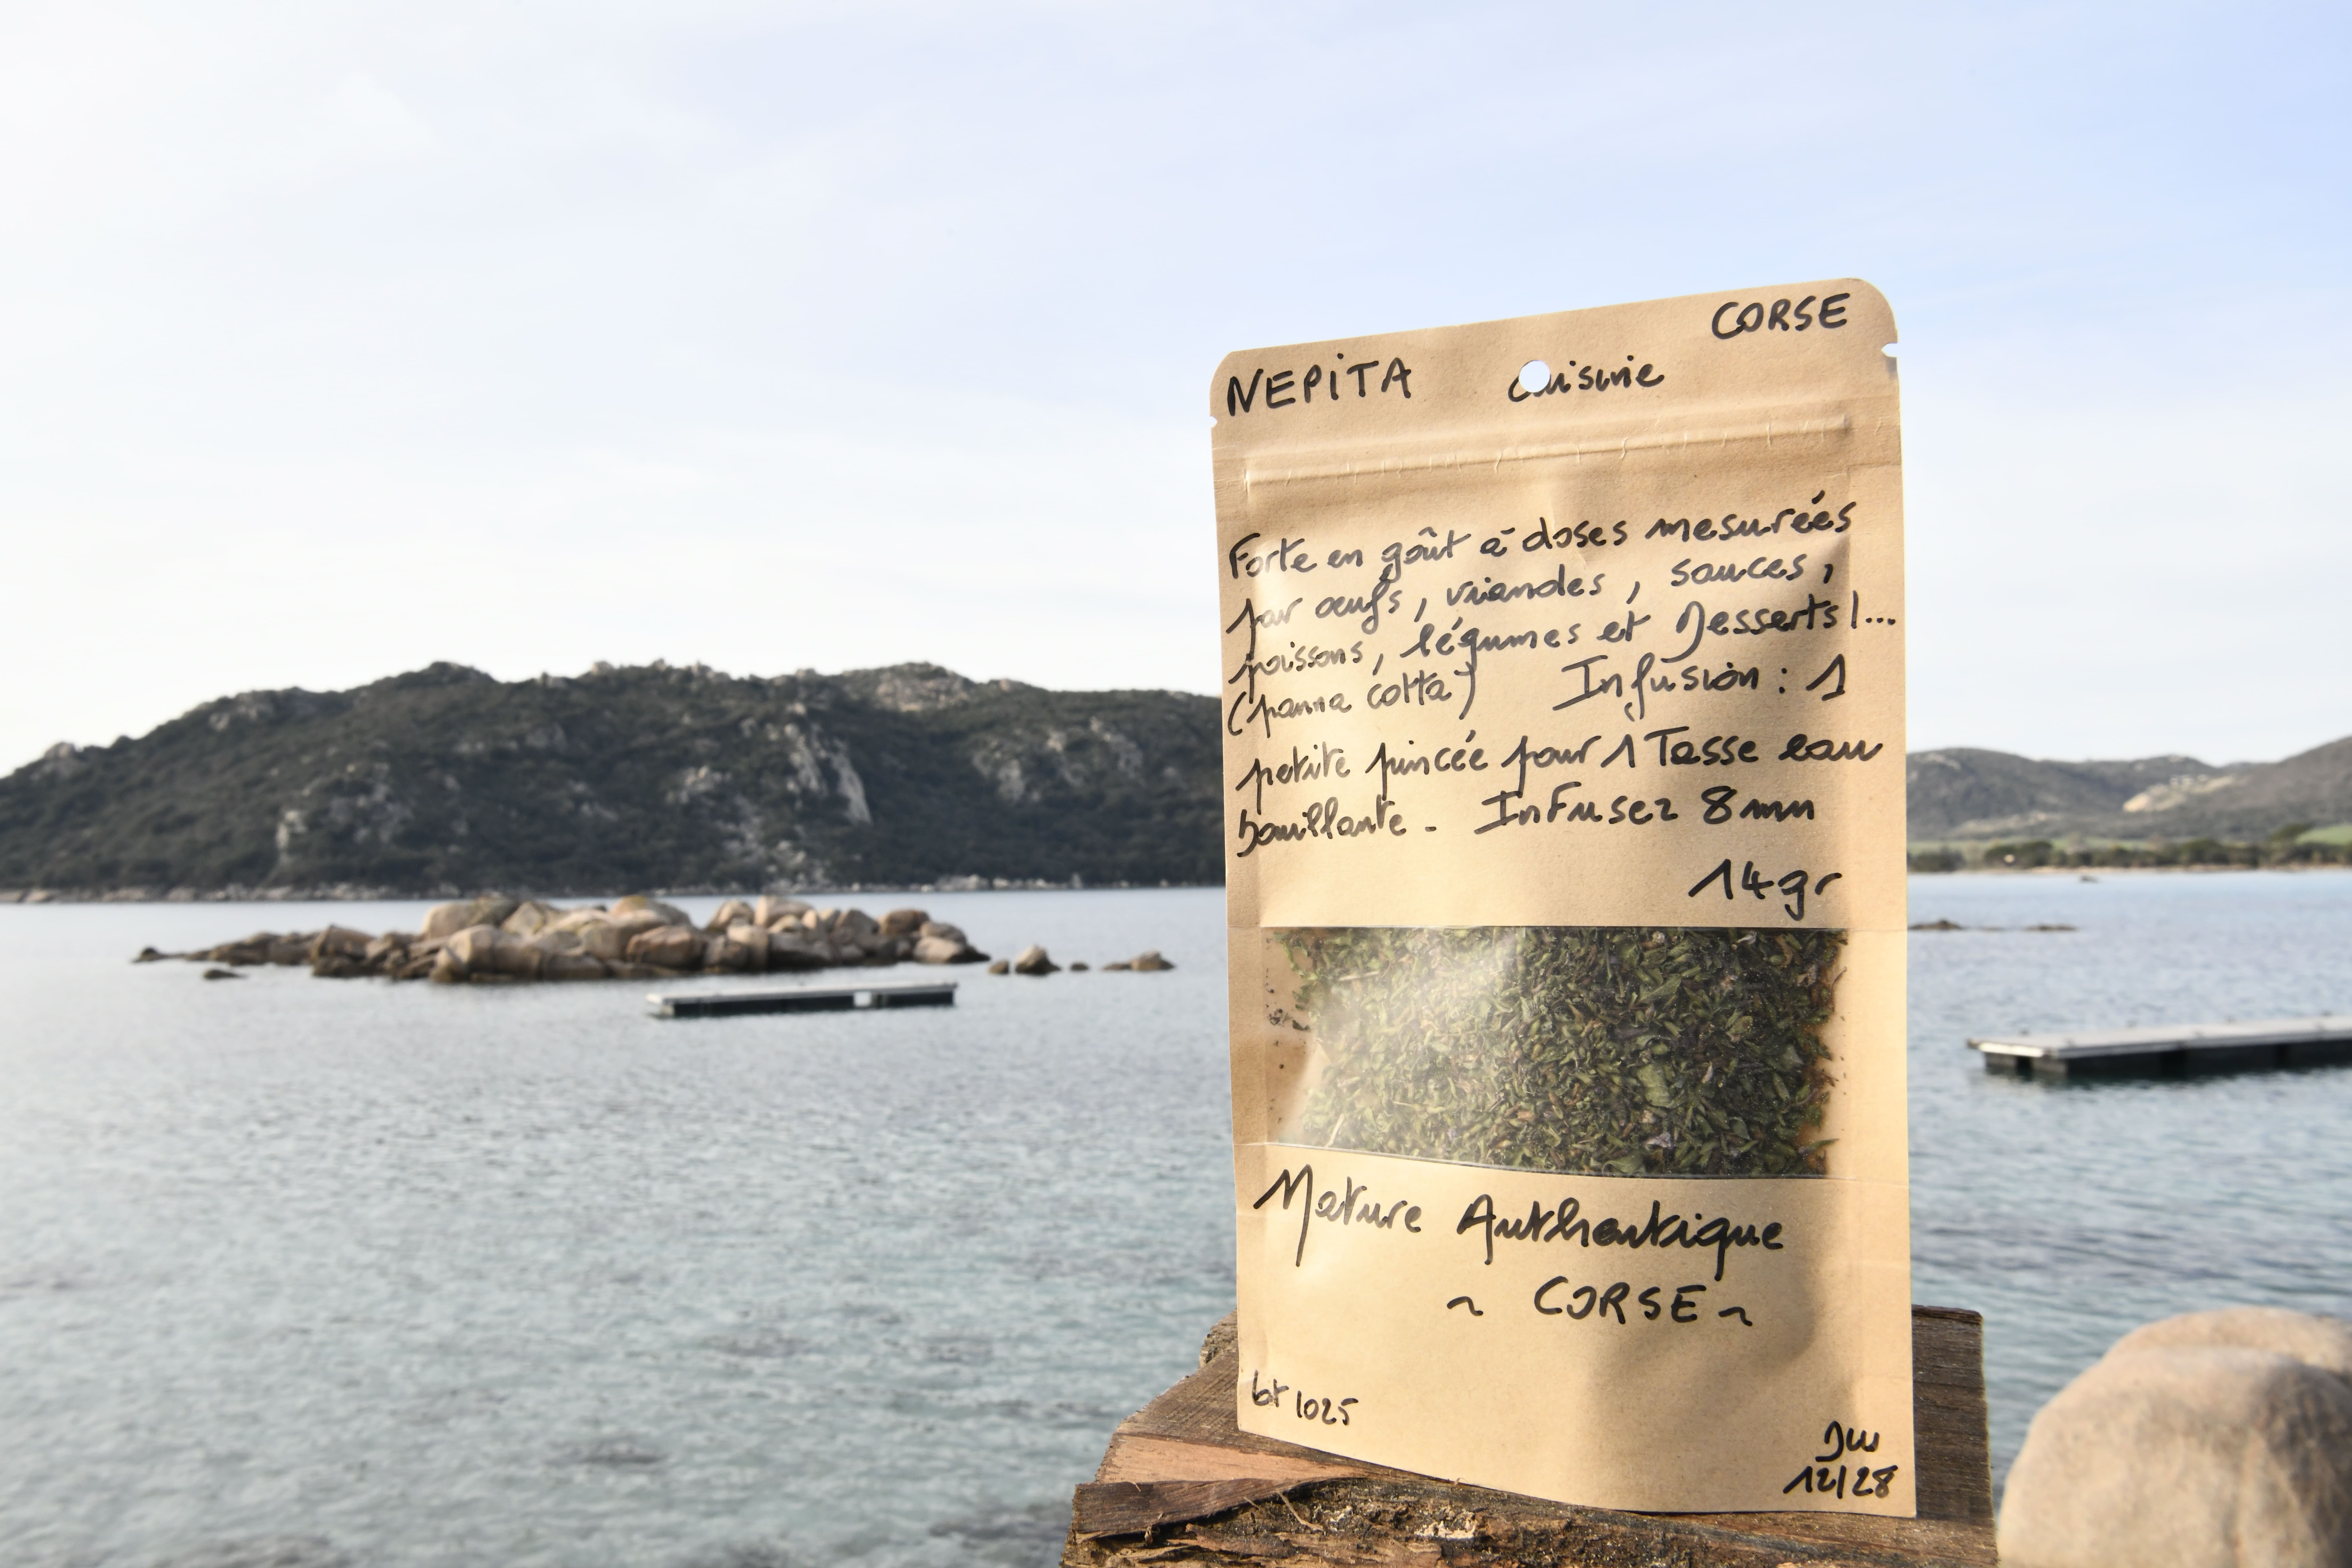 NEPiTA Cuisine CORSE
Forte en goût à doses mesurées
sur œufs, viandes, sauces,
poissons, légumes et Desserts !...
(panna cotta) Infusion : 1
petite pincée pour 1 Tasse eau
bouillante - Infusez 8 mn
14 gr
Nature Authentique
~ CORSE ~
lot 1025
DLU
12/28